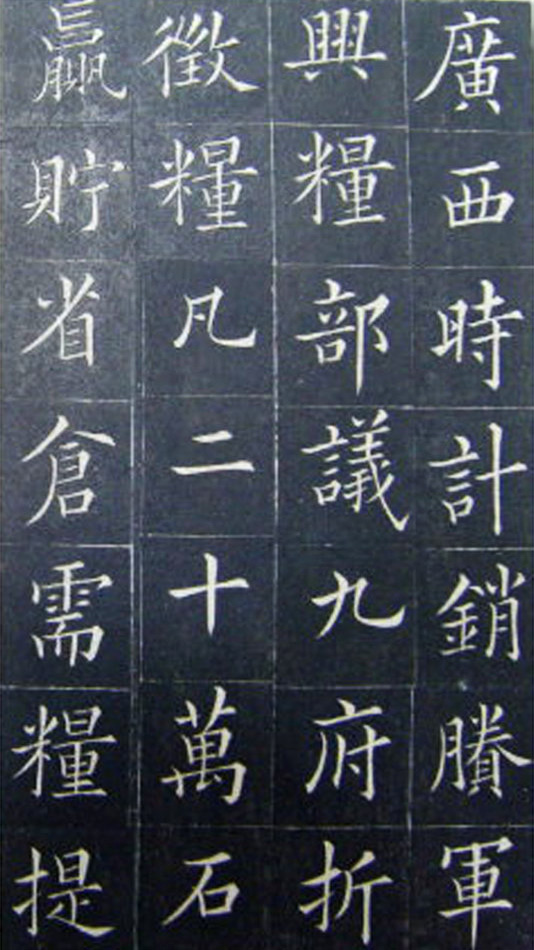 廣西時計銷賸軍
興糧部議九府折
徵糧凡二十萬石
羸貯省倉需糧提